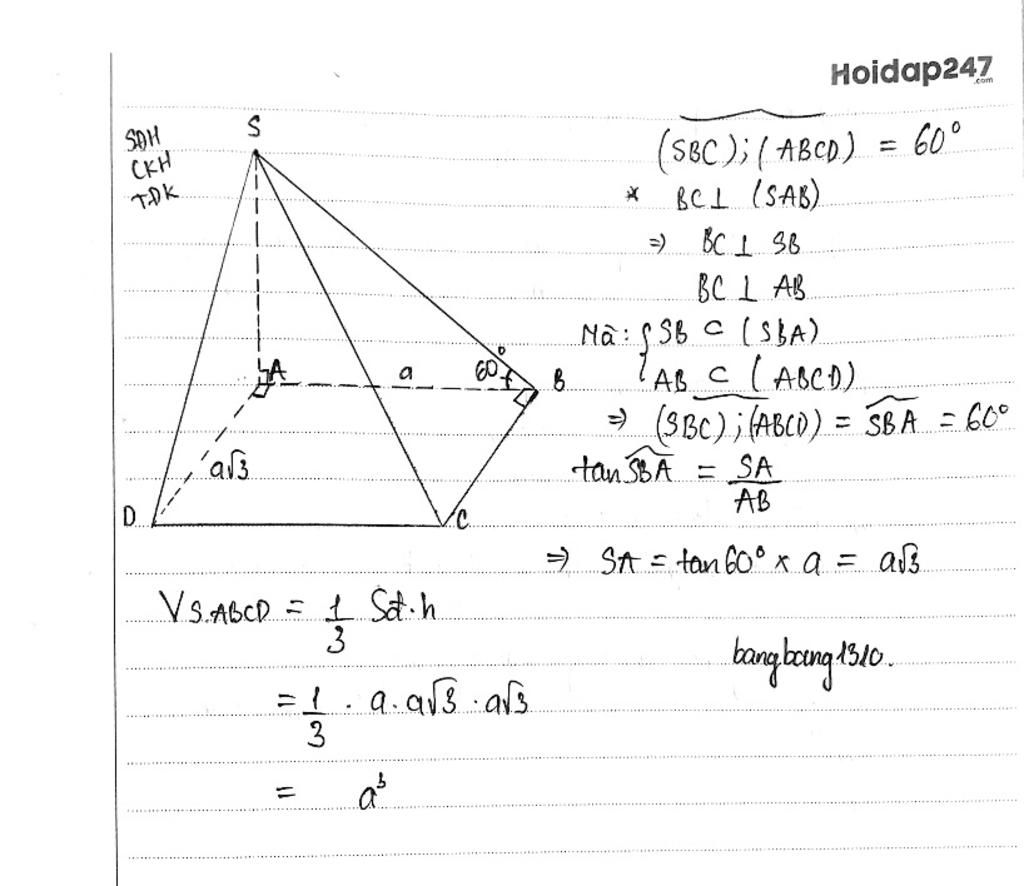 Hoidap247
.com
SĐH
CKH
TĐK
S
A
a
60°
B
a√3
D
C
(SBC);(ABCD) = 60°
* BC⊥ (SAB)
=) BC ⊥ SB
BC ⊥ AB
Mà: { SB ⊂ (SBA)
AB ⊂ (ABCD)
=) (SBC);(ABCD) = SBA = 60°
tan SBA = SA/AB
=) SA = tan60° x a = a√3
VS.ABCD = 1/3 Sđ.h
= 1/3 . a.a√3 .a√3
= a³
bangbang1310.